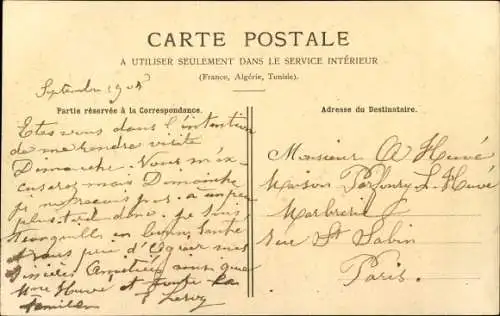 CARTE POSTALE
A UTILISER SEULEMENT DANS LE SERVICE INTÉRIEUR
(France, Algérie, Tunisie).
Septembre
Partie réservée à la Correspondance.
Etes vous dans l'intention
de me rendre visite
Dimanche. Vous m'ex
cuserez mais Dimanche
je ne reçois pas. a un peu
plus tard donc. Je suis
tranquille en bonne santé
vous prie d'Agréer mes
sincères ainsi que
Mme Huvé et toute la
famille
Adresse du Destinataire.
Monsieur A Huvé
Maison L. Huvé
Marbrerie
rue St Sabin
Paris.